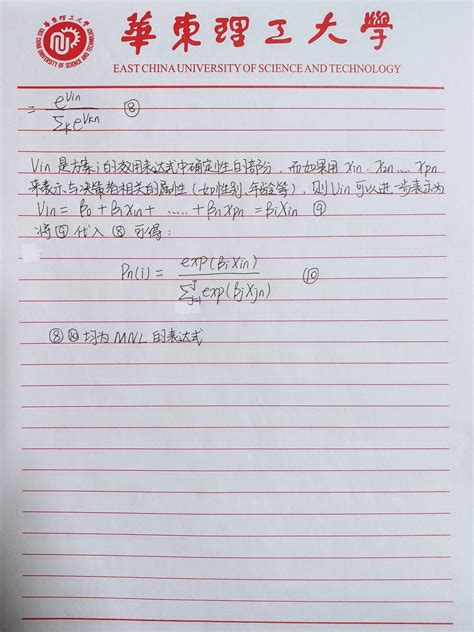 華東理工大學
EAST CHINA UNIVERSITY OF SCIENCE AND TECHNOLOGY
= e^Vin / Σk e^Vkn ⑧
Vin 是方案 i 的效用表达式中确定性的部分，而如果用 x1n, x2n, ... xpn
来表示与决策者相关的属性（如性别、年龄等），则 Vin 可以进一步表示为
Vin = β0 + β1x1n + ..... + βnxpn = βiXin ⑨
将 ⑨ 代入 ⑧ 可得：
Pn(i) = exp(βiXin) / Σ_{j=1}^{J} exp(βjXjn) ⑩
⑧ ⑩ 均为 MNL 的表达式